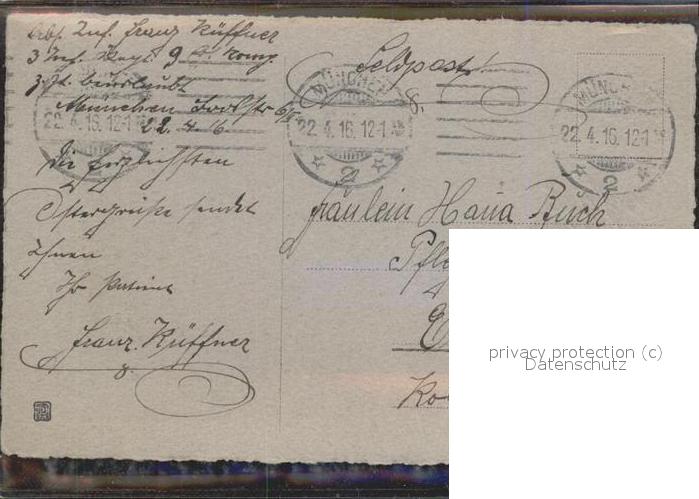 Abs. Inf. Franz Küffner
3 Inf. Regt. 9. Komp.
z. Zt. beurlaubt
München
22. 4. 16
Feldpost
MÜNCHEN
22. 4. 16. 12-1
2
MÜNCHEN
22. 4. 16. 12-1
2
22. 4. 16. 12-1
Die herzlichsten
Ostergrüße sendet
Ihnen
Ihr Patient
Franz Küffner
Fräulein Hana Ruch
privacy protection (c)
Datenschutz